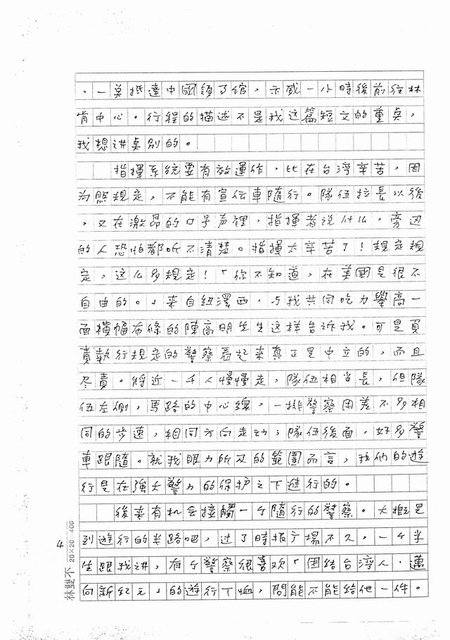 ，一莫抵達中國領了館，示威一小時後前行林
肯中心。行程的描述不是我这篇短文的重点，
我想讲点别的。
指揮系統要有效運作，比在台湾辛苦，因
為照規定，不能有宣伝車隨行。隊伍拉長以後
，又在激昂的口号声裡，指揮者说什么，旁边
的人恐怕都听不清楚。指揮太辛苦了！規定規
定，这么多規定！「你不知道，在美國是很不
自由的。」来自紐澤西，与我共同吃力擧高一
面橫幅布條的陳高明先生这样告訴我。可是負
責執行規定的警察看起来真正是中立的，而且
尽責。將近一千人慢慢走，隊伍相当長，但隊
伍左側，馬路的中心線，一排警察用差不多相
同的步速，相同方向走动；隊伍後面，好多警
車跟隨。就我眼力所及的範圍而言，我們的遊
行是在強大警力的保护之下進行的。
後来有机会接觸一个隨行的警察。大概是
到遊行的半路吧，过了時报广場不久，一个学
生跟我讲，有个警察很喜欢「团結台湾人，邁
向新紀元」的遊行T恤，問能不能給他一件。
4
20×20=400
林雙不